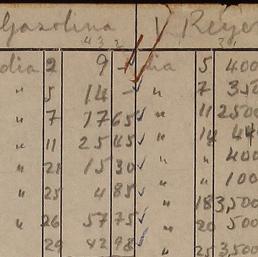 Gasolina V Reyes
dia 2 9 - dia 5 400
" 5 14 - " 7 350
" 7 17 65 " 11 2500
" 11 25 45 " 14 44
" 21 15 30 " " 400
" 25 4 85 " " 100
" 26 57 75 " 18 3,500
" 29 42 98 " 20 500
" 25 3,500